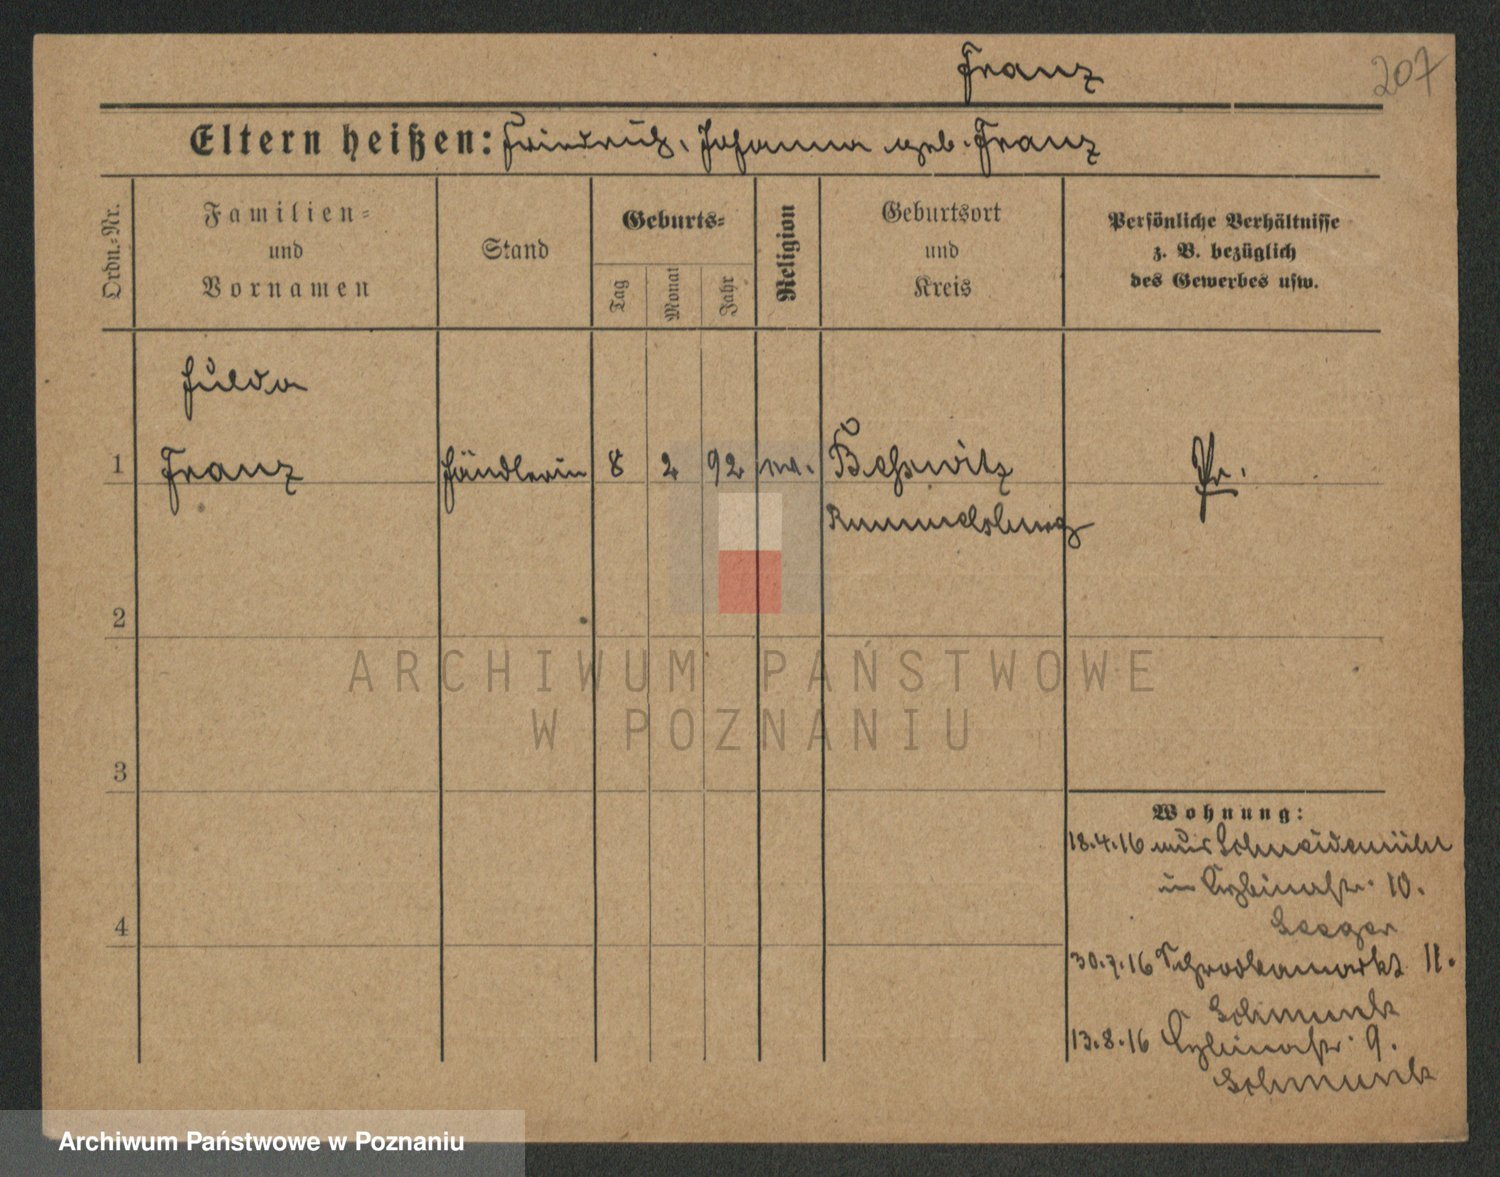 Franz
207
Eltern heißen: Friedrich, Johanna geb. Franz
Ordn.-Nr.
Familien-
und
Vornamen
Stand
Geburts-
Tag
Monat
Jahr
Religion
Geburtsort
und
Kreis
Persönliche Verhältnisse
z. B. bezüglich
des Gewerbes usw.
Hulda
1 Franz Händlerin 8 2 92 ev. Beßwitz Pr.
Rummelsburg
2
3
4
Wohnung:
18.4.16 aus Schneidemühl
in Cybinastr. 10.
Seeger
30.7.16 Schrodkamarkt 11.
Schmunk
13.8.16 Cybinastr. 9.
Schmunk
ARCHIWUM PAŃSTWOWE
W POZNANIU
Archiwum Państwowe w Poznaniu